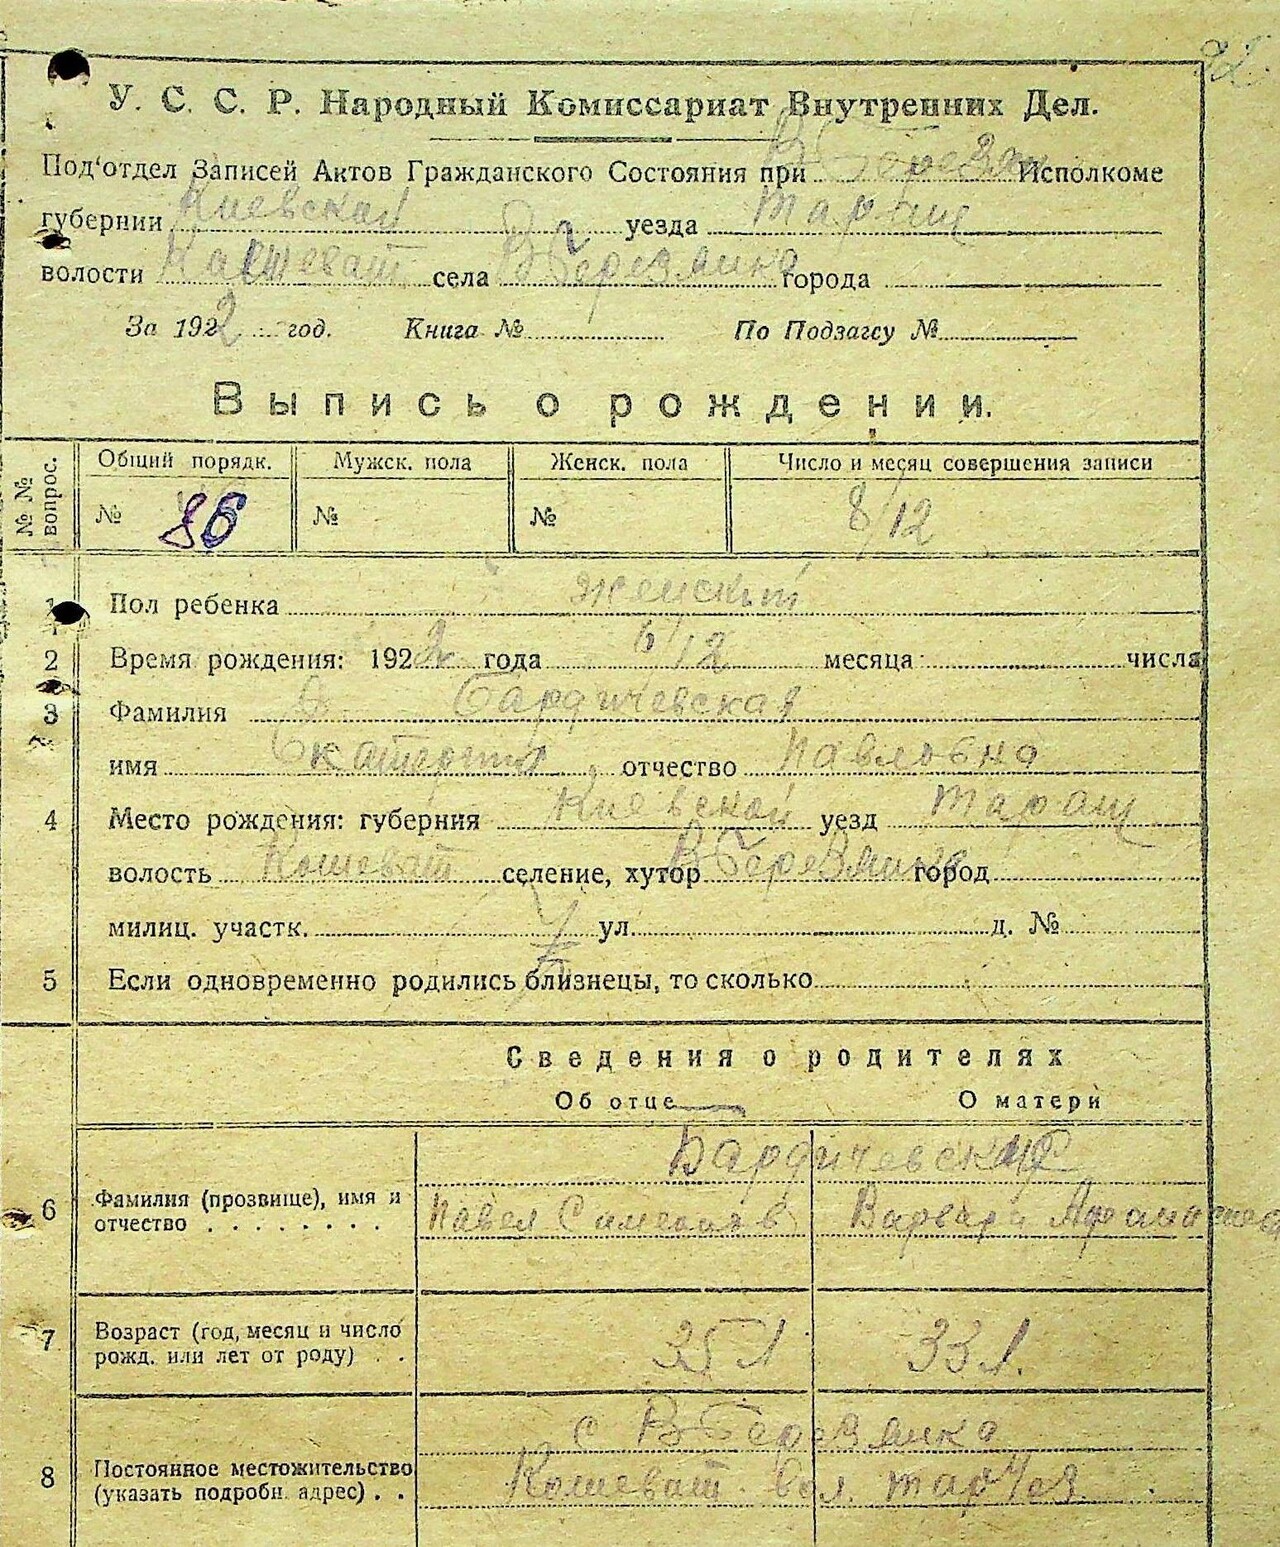 92
У. С. С. Р. Народный Комиссариат Внутренних Дел.
Под'отдел Записей Актов Гражданского Состояния при В Березян Исполкоме
губернии Киевской уезда Таращ
волости Кашеват села В Березянка города
За 1922 год. Книга № По Подзагсу №
Выпись о рождении.
№ № вопрос. Общий порядк. Мужск. пола Женск. пола Число и месяц совершения записи
№ 86 № № 8/12
1 Пол ребенка женский
2 Время рождения: 1922 года 6/12 месяца числа
3 Фамилия Бардичевская
имя Екатерина отчество Павловна
4 Место рождения: губерния Киевской уезд Таращ
волость Кошеват селение, хутор В Березянка город
милиц. участк. ул. д. №
5 Если одновременно родились близнецы, то сколько
Сведения о родителях
Об отце О матери
Бардичевские
6 Фамилия (прозвище), имя и отчество Павел Симеонов Варвара Афанасиева
7 Возраст (год, месяц и число рожд. или лет от роду) 35 л 33 л.
с В Березянка
8 Постоянное местожительство (указать подробн. адрес) Кошеват. вол. Тар